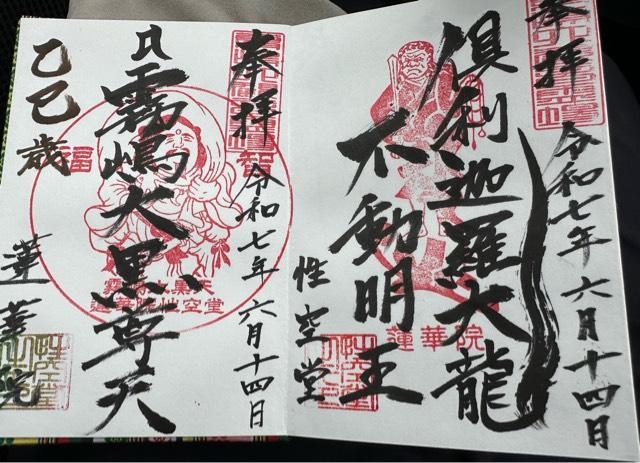 奉拝
令和七年六月十四日
倶利迦羅大龍
不動明王
性空堂
蓮華院
奉拝
令和七年六月十四日
霧嶋大黒尊天
乙巳歳
蓮華院
福
智
蓮華院性空堂